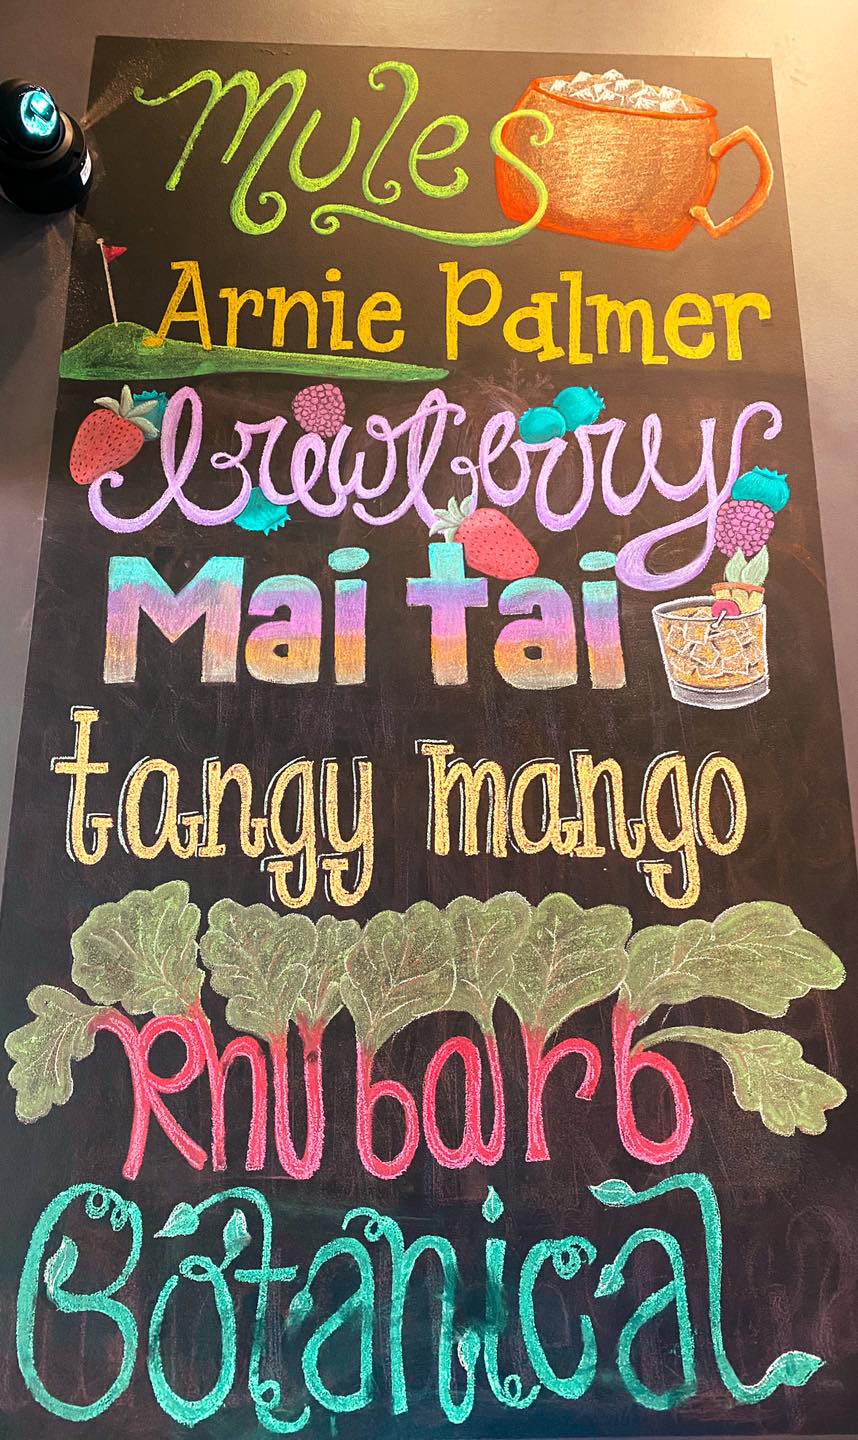 Mules
Arnie Palmer
brewberry
Mai tai
tangy mango
Rhubarb
Botanical